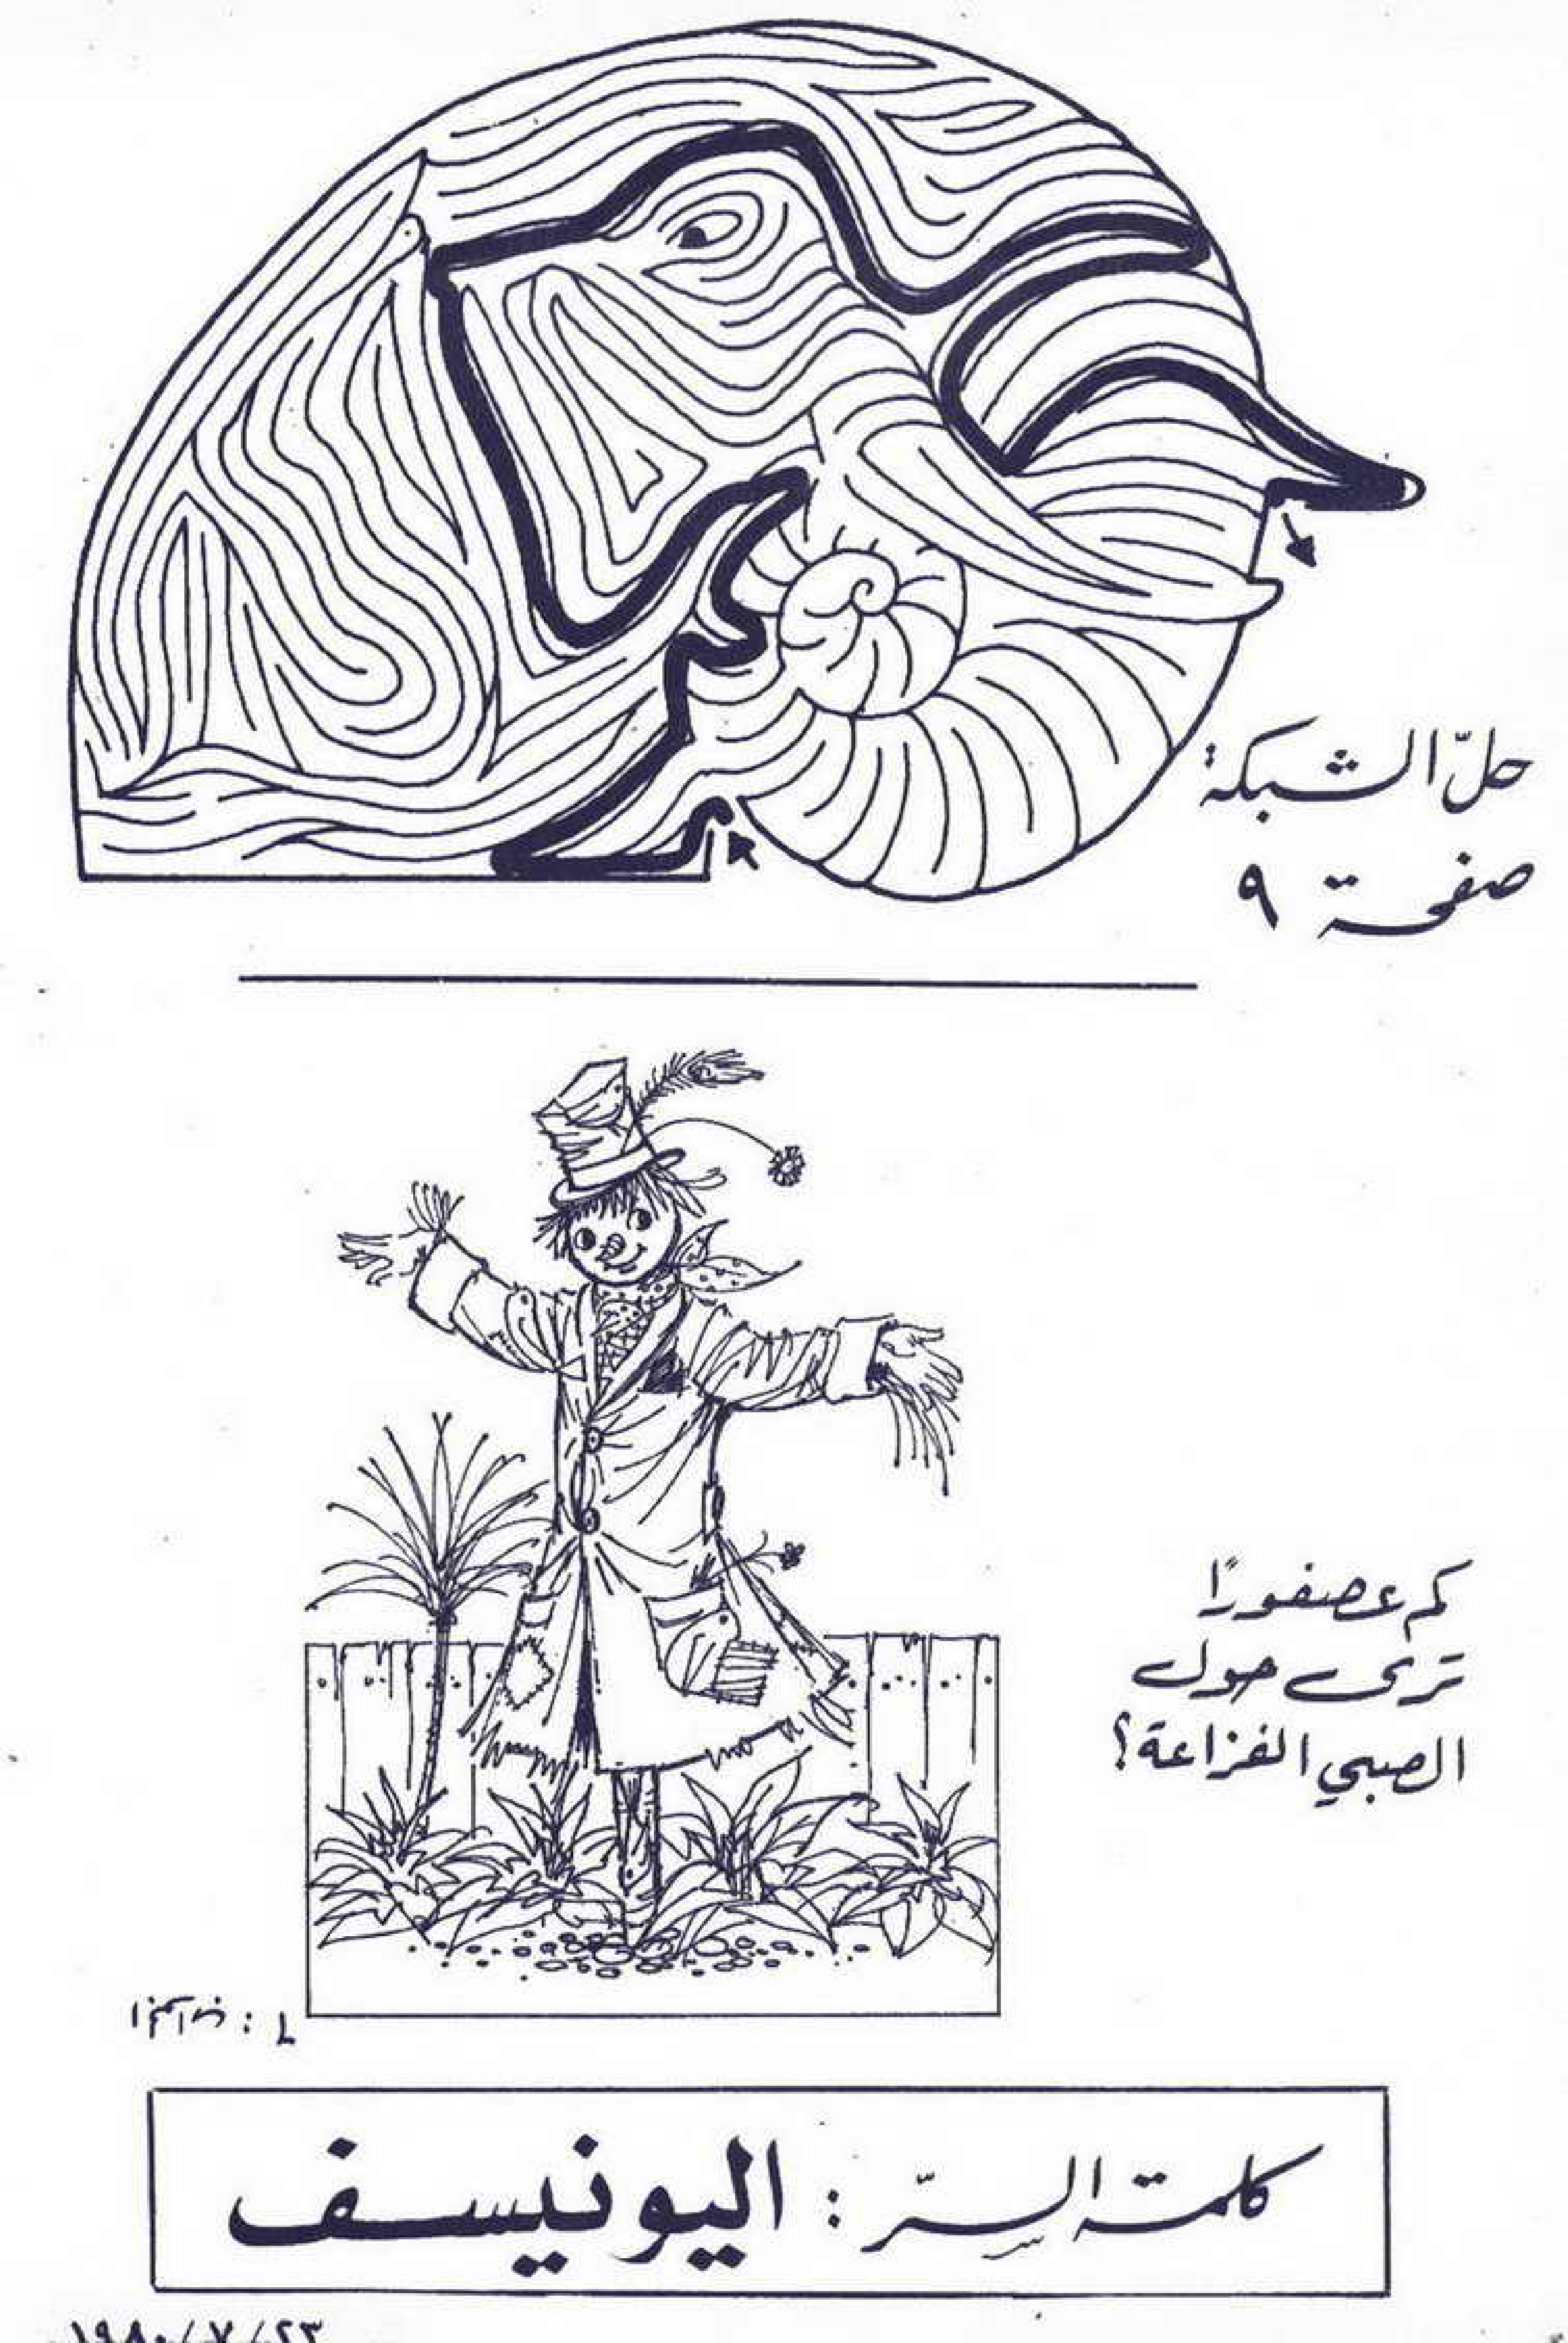 حلّ الشبكة:
صفحة ٩
كم عصفورًا
ترى حول
الصبي الفزاعة؟
كلمة السرّ : اليونيسف